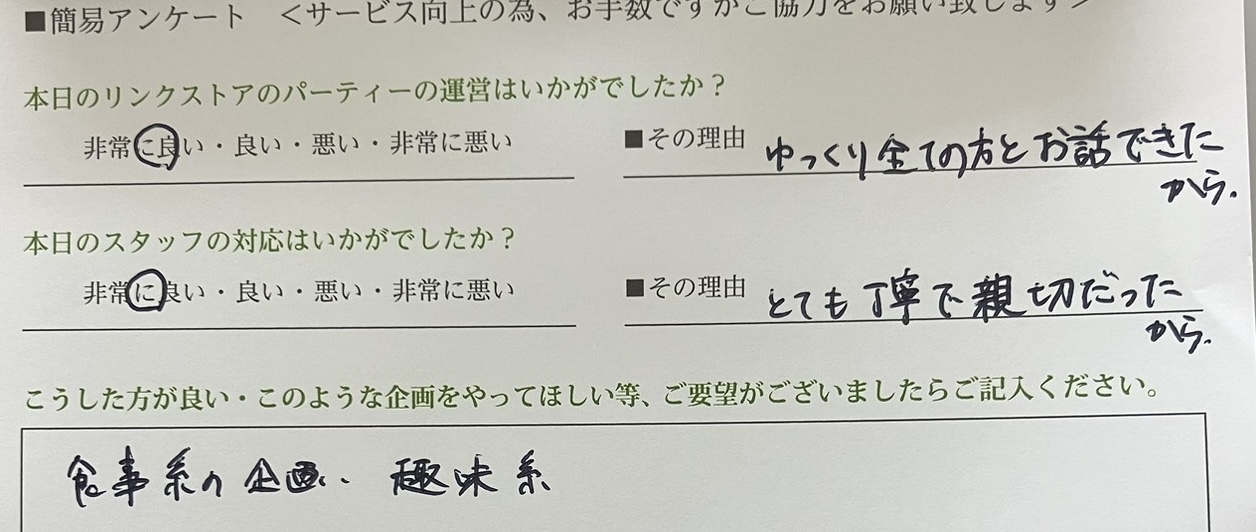 ■簡易アンケート <サービス向上の為、お手数ですがご協力をお願い致します>
本日のリンクストアのパーティーの運営はいかがでしたか？
非常に良い・良い・悪い・非常に悪い ■その理由 ゆっくり全ての方とお話できた
から.
本日のスタッフの対応はいかがでしたか？
非常に良い・良い・悪い・非常に悪い ■その理由 とても丁寧で親切だった
から.
こうした方が良い・このような企画をやってほしい等、ご要望がございましたらご記入ください。
食事系の企画.. 趣味系